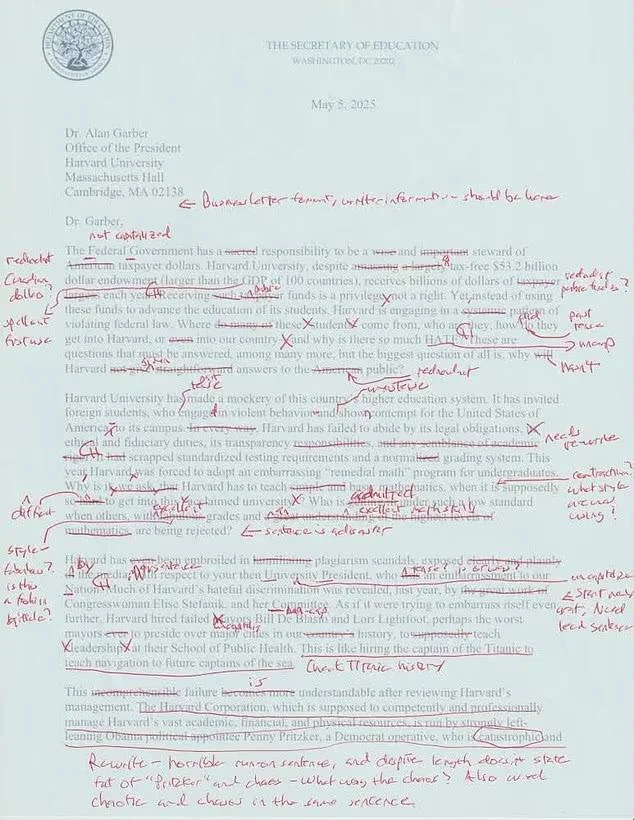 DEPARTMENT OF EDUCATION
THE SECRETARY OF EDUCATION
WASHINGTON, DC 20202
May 5, 2025
Dr. Alan Garber
Office of the President
Harvard University
Massachusetts Hall
Cambridge, MA 02138
← Business letter format, writer information should be here
Dr. Garber,
not capitalized
The Federal Government has a sacred responsibility to be a wise and important steward of
American taxpayer dollars. Harvard University, despite amassing a largely tax-free $53.2 billion
dollar endowment (larger than the GDP of 100 countries), receives billions of dollars of taxpayer
largess each year. Receiving such taxpayer funds is a privilege, not a right. Yet, instead of using
these funds to advance the education of its students, Harvard is engaging in a systemic pattern of
violating federal law. Where do many of these students come from, who are they, how do they
get into Harvard, or even into our country and why is there so much HATE? These are
questions that must be answered, among many more, but the biggest question of all is, why will
Harvard not give straightforward answers to the American public?
redundant
Canadian
dollars?
spell out
first use
redundant
public funds?
public
past
tense
uncap
won't
redundant
Harvard University has made a mockery of this country's higher education system. It has invited
foreign students, who engaged in violent behavior and show contempt for the United States of
America, to its campus. In every way, Harvard has failed to abide by its legal obligations, its
ethical and fiduciary duties, its transparency responsibilities, and any semblance of academic
rigor. It had scrapped standardized testing requirements and a normalized grading system. This
year Harvard was forced to adopt an embarrassing "remedial math" program for undergraduates.
Why is it, we ask, that Harvard has to teach simple and basic mathematics, when it is supposedly
so hard to get into this acclaimed university? Who is getting in under such a low standard
when others, with excellent grades and a great understanding of the highest levels of
mathematics, are being rejected?
needs
rewrite
contraction?
what style
are we
using?
difficult
admitted
excellent
← sentence is a disaster
Harvard has even been embroiled in humiliating plagiarism scandals, exposed clearly and plainly
in the media, with respect to your then University President, who was an embarrassment to our
Nation. Much of Harvard's hateful discrimination was revealed, last year, by the great work of
Congresswoman Elise Stefanik, and her Committee. As if it were trying to embarrass itself even
further, Harvard hired failed Mayors Bill De Blasio and Lori Lightfoot, perhaps the worst
mayors ever to preside over major cities in our country's history, to supposedly teach
"leadership" at their School of Public Health. This is like hiring the captain of the Titanic to
teach navigation to future captains of the sea.
style-
is this
by
uncapitalize
← Start new
Need
lead sentence
Check Titanic history
is
This incomprehensible failure becomes more understandable after reviewing Harvard's
management. The Harvard Corporation, which is supposed to competently and professionally
manage Harvard's vast academic, financial, and physical resources, is run by strongly left-
leaning Obama political appointee Penny Pritzker, a Democrat operative, who is catastrophic and
Rewrite - horrible run on sentence, and despite length doesn't state
of "Pritzker" and chaos - What was the chaos? Also used
chaotic and chaos in the same sentence.